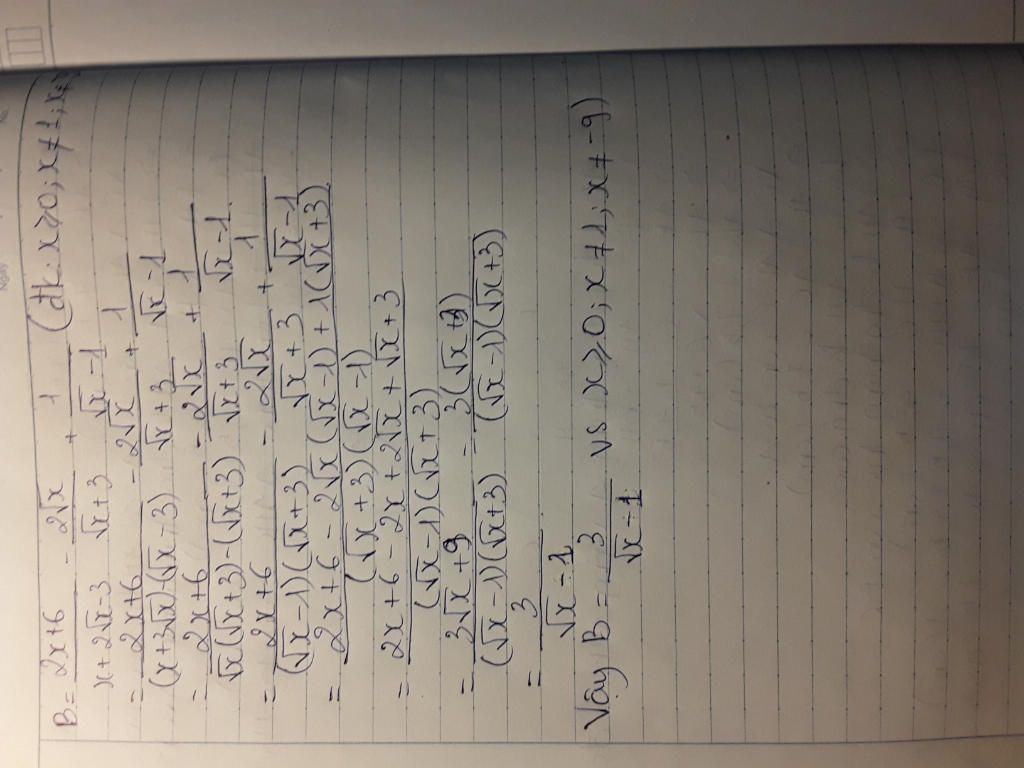 B = (2x+6)/(x+2√x-3) - 2√x/(√x+3) + 1/(√x-1) (đk: x≥0; x≠1;
= (2x+6)/((x+3√x)-(√x-3)) - 2√x/(√x+3) + 1/(√x-1)
= (2x+6)/(√x(√x+3)-(√x+3)) - 2√x/(√x+3) + 1/(√x-1)
= (2x+6)/((√x-1)(√x+3)) - 2√x/(√x+3) + 1/(√x-1)
= (2x+6-2√x(√x-1)+1(√x+3))/((√x+3)(√x-1))
= (2x+6-2x+2√x+√x+3)/((√x-1)(√x+3))
= (3√x+9)/((√x-1)(√x+3)) = 3(√x+3)/((√x-1)(√x+3))
= 3/(√x-1)
Vậy B = 3/(√x-1) vs x≥0; x≠1; x≠-9)